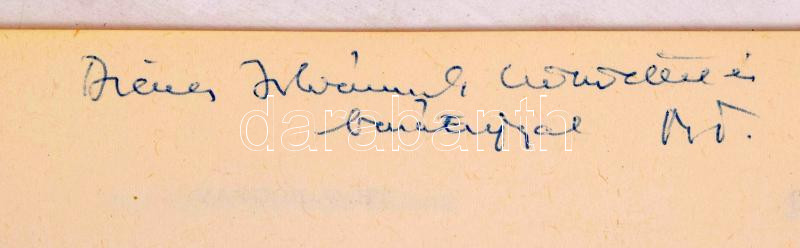 Dienes Istvánnak, köszönettel és
barátsággal
darabanth